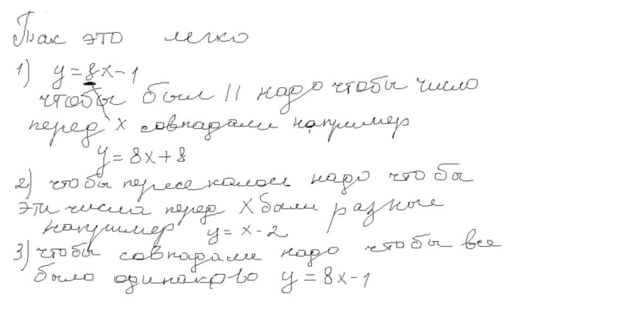 Так это легко
1) y=8x-1
чтобы был || надо чтобы число
перед x совпадали например
y=8x+8
2) чтобы пересекалось надо чтобы
эти числа перед x были разные
например y=x-2
3) чтобы совпадали надо чтобы все
было одинаково y=8x-1